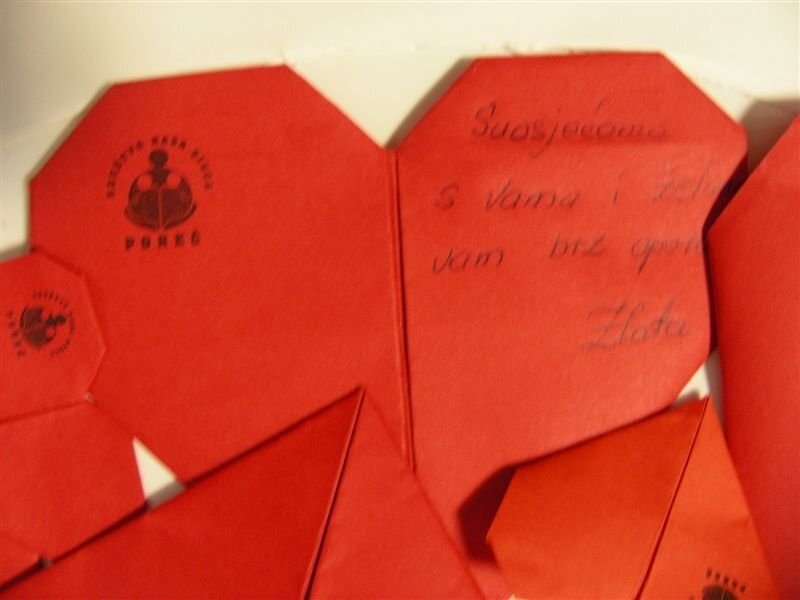 DRUŠTVO NAŠA DJECA
POREČ
Suosjećamo
s vama i Želi
vam brz opora
Zlata
POREČ